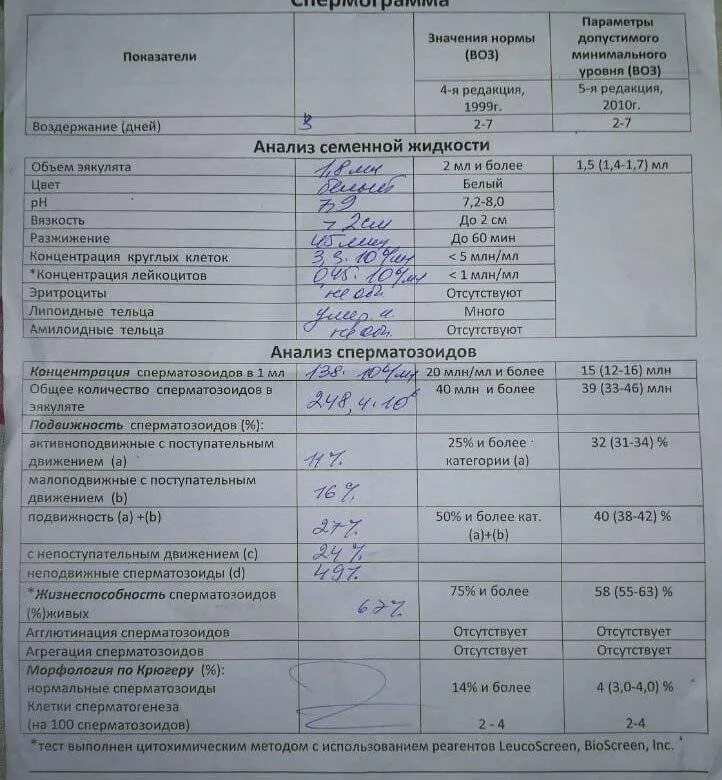 Спермограмма
Показатели
Значения нормы (ВОЗ)
Параметры допустимого минимального уровня (ВОЗ)
4-я редакция, 1999г.
5-я редакция, 2010г.
Воздержание (дней) 3 2-7 2-7
Анализ семенной жидкости
Объем эякулята 1,8 мл 2 мл и более 1,5 (1,4-1,7) мл
Цвет белый Белый
pH 7,9 7,2-8,0
Вязкость 2см До 2 см
Разжижение 45 мин До 60 мин
Концентрация круглых клеток < 5 млн/мл
*Концентрация лейкоцитов < 1 млн/мл
Эритроциты не об. Отсутствуют
Липоидные тельца Много
Амилоидные тельца не об. Отсутствуют
Анализ сперматозоидов
Концентрация сперматозоидов в 1 мл 20 млн/мл и более 15 (12-16) млн
Общее количество сперматозоидов в эякуляте 248,4·10⁶ 40 млн и более 39 (33-46) млн
Подвижность сперматозоидов (%):
активноподвижные с поступательным движением (a) 11% 25% и более категории (a) 32 (31-34) %
малоподвижные с поступательным движением (b) 16%
подвижность (a) +(b) 27% 50% и более кат. (a)+(b) 40 (38-42) %
с непоступательным движением (c) 24%
неподвижные сперматозоиды (d) 49%
*Жизнеспособность сперматозоидов (%)живых 67% 75% и более 58 (55-63) %
Агглютинация сперматозоидов Отсутствует Отсутствует
Агрегация сперматозоидов Отсутствует Отсутствует
Морфология по Крюгеру (%):
нормальные сперматозоиды 14% и более 4 (3,0-4,0) %
Клетки сперматогенеза
(на 100 сперматозоидов) 2 - 4 2-4
*тест выполнен цитохимическим методом с использованием реагентов LeucoScreen, BioScreen, Inc.